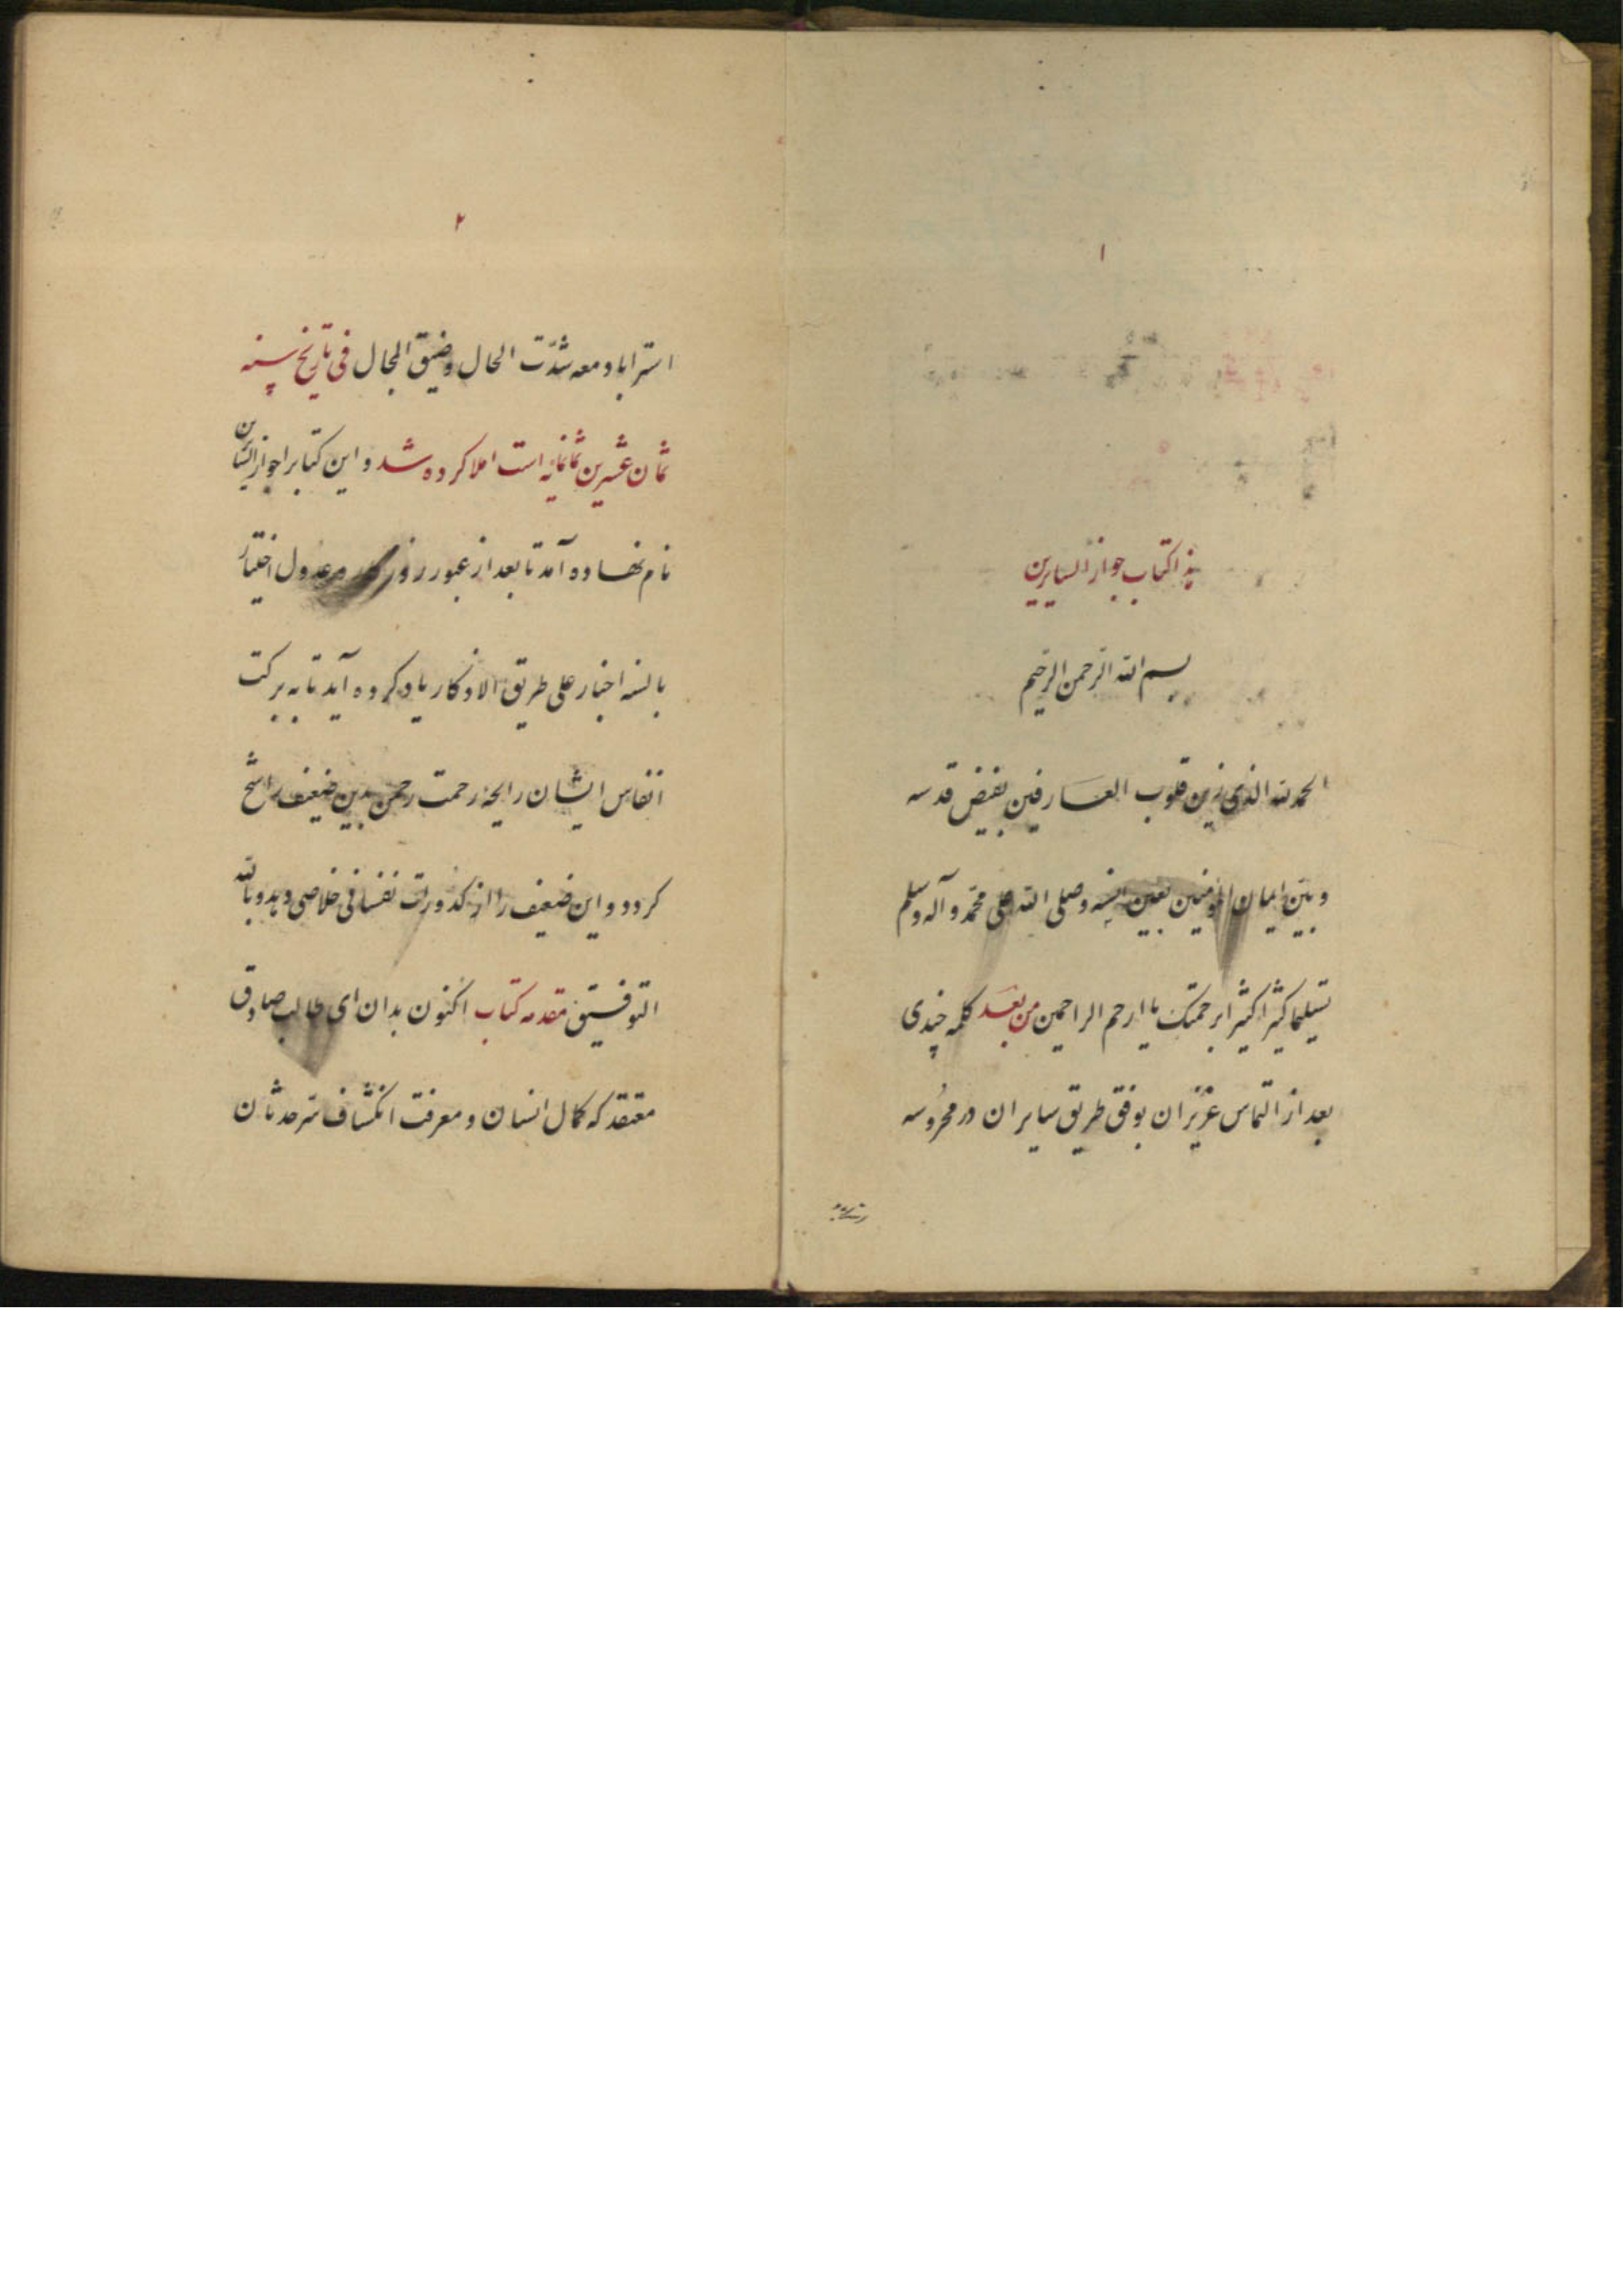 ۱
هذا کتاب جواز السایرین
بسم الله الرحمن الرحیم
الحمد لله الذی زین قلوب العارفین بفیض قدسه
و بین ایمان المؤمنین بعین انسه و صلی الله علی محمد و آله و سلم
تسلیما کثیرا کثیرا برحمتک یا ارحم الراحمین من بعد کلمه چندی
بعد از التماس عزیزان بوفق طریق سایران در محروسه
۲
استراباد معه شدت الحال و ضیق المجال فی تاریخ سنه
ثمان عشرین ثمانمایه است املا کرده شد و این کتابرا جواز السایرین
نام نهاده آمد تا بعد از عبور روزکار عدول اختیار
بالسنه اخبار علی طریق الاذکار یاد کرده آید تا به برکت
انفاس ایشان رایحه رحمت رحمن بدین ضعیف راشح
کردد و این ضعیف را از کدورت نفسانی خلاصی دهد و بالله
التوفیق مقدمه کتاب اکنون بدان ای طالب صادق
معتقد که کمال انسان و معرفت انکشاف سر حدثان